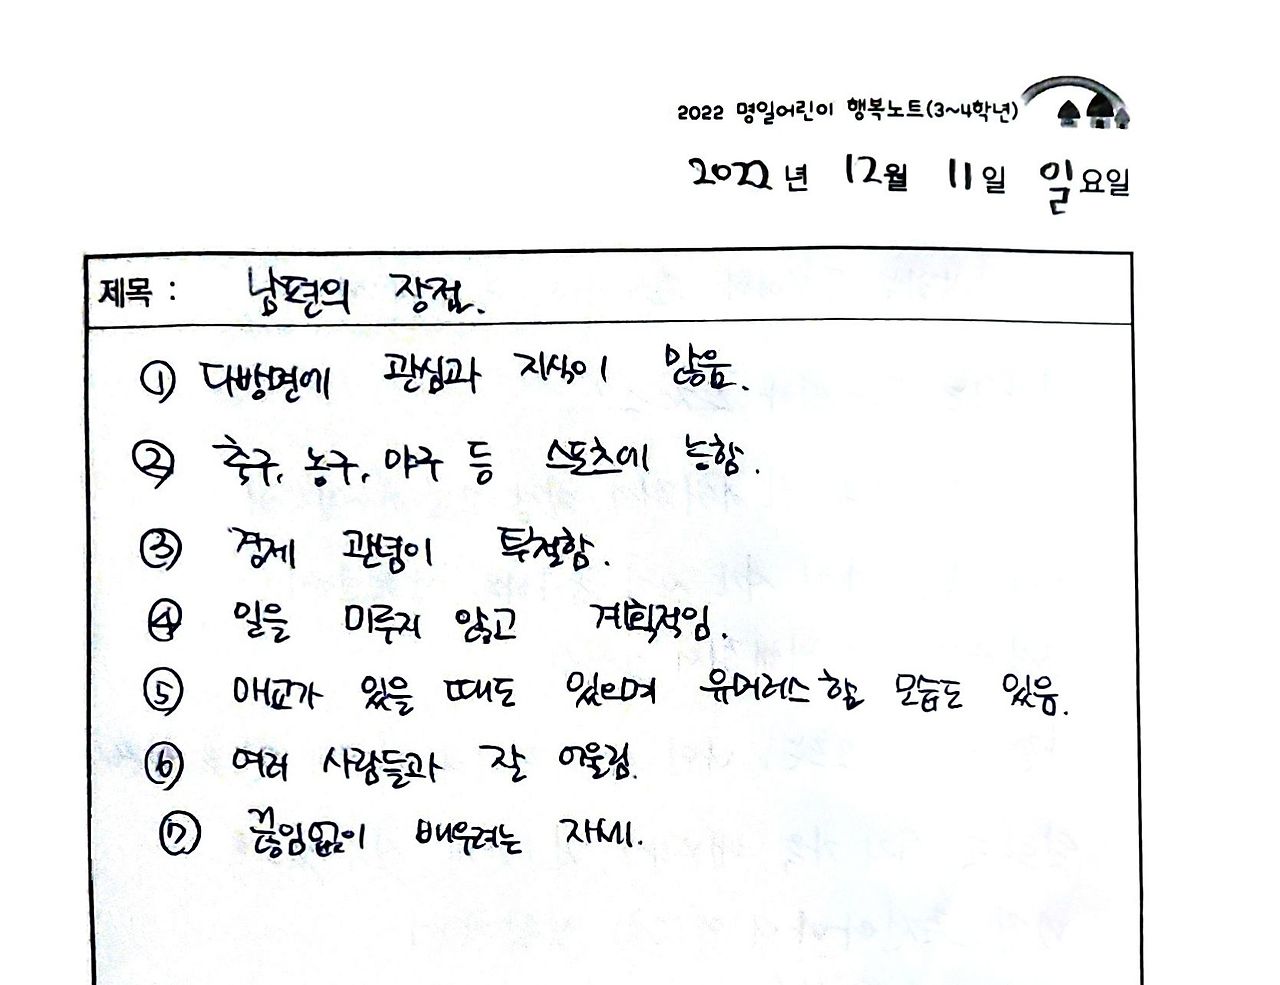 2022 명일어린이 행복노트(3~4학년)
2022년 12월 11일 일요일
제목 : 남편의 장점.
① 다방면에 관심과 지식이 많음.
② 축구, 농구, 야구 등 스포츠에 능함.
③ 경제 관념이 투철함.
④ 일을 미루지 않고 계획적임.
⑤ 애교가 있을 때도 있으며 유머러스함 모습도 있음.
⑥ 여러 사람들과 잘 어울림.
⑦ 끊임없이 배우려는 자세.